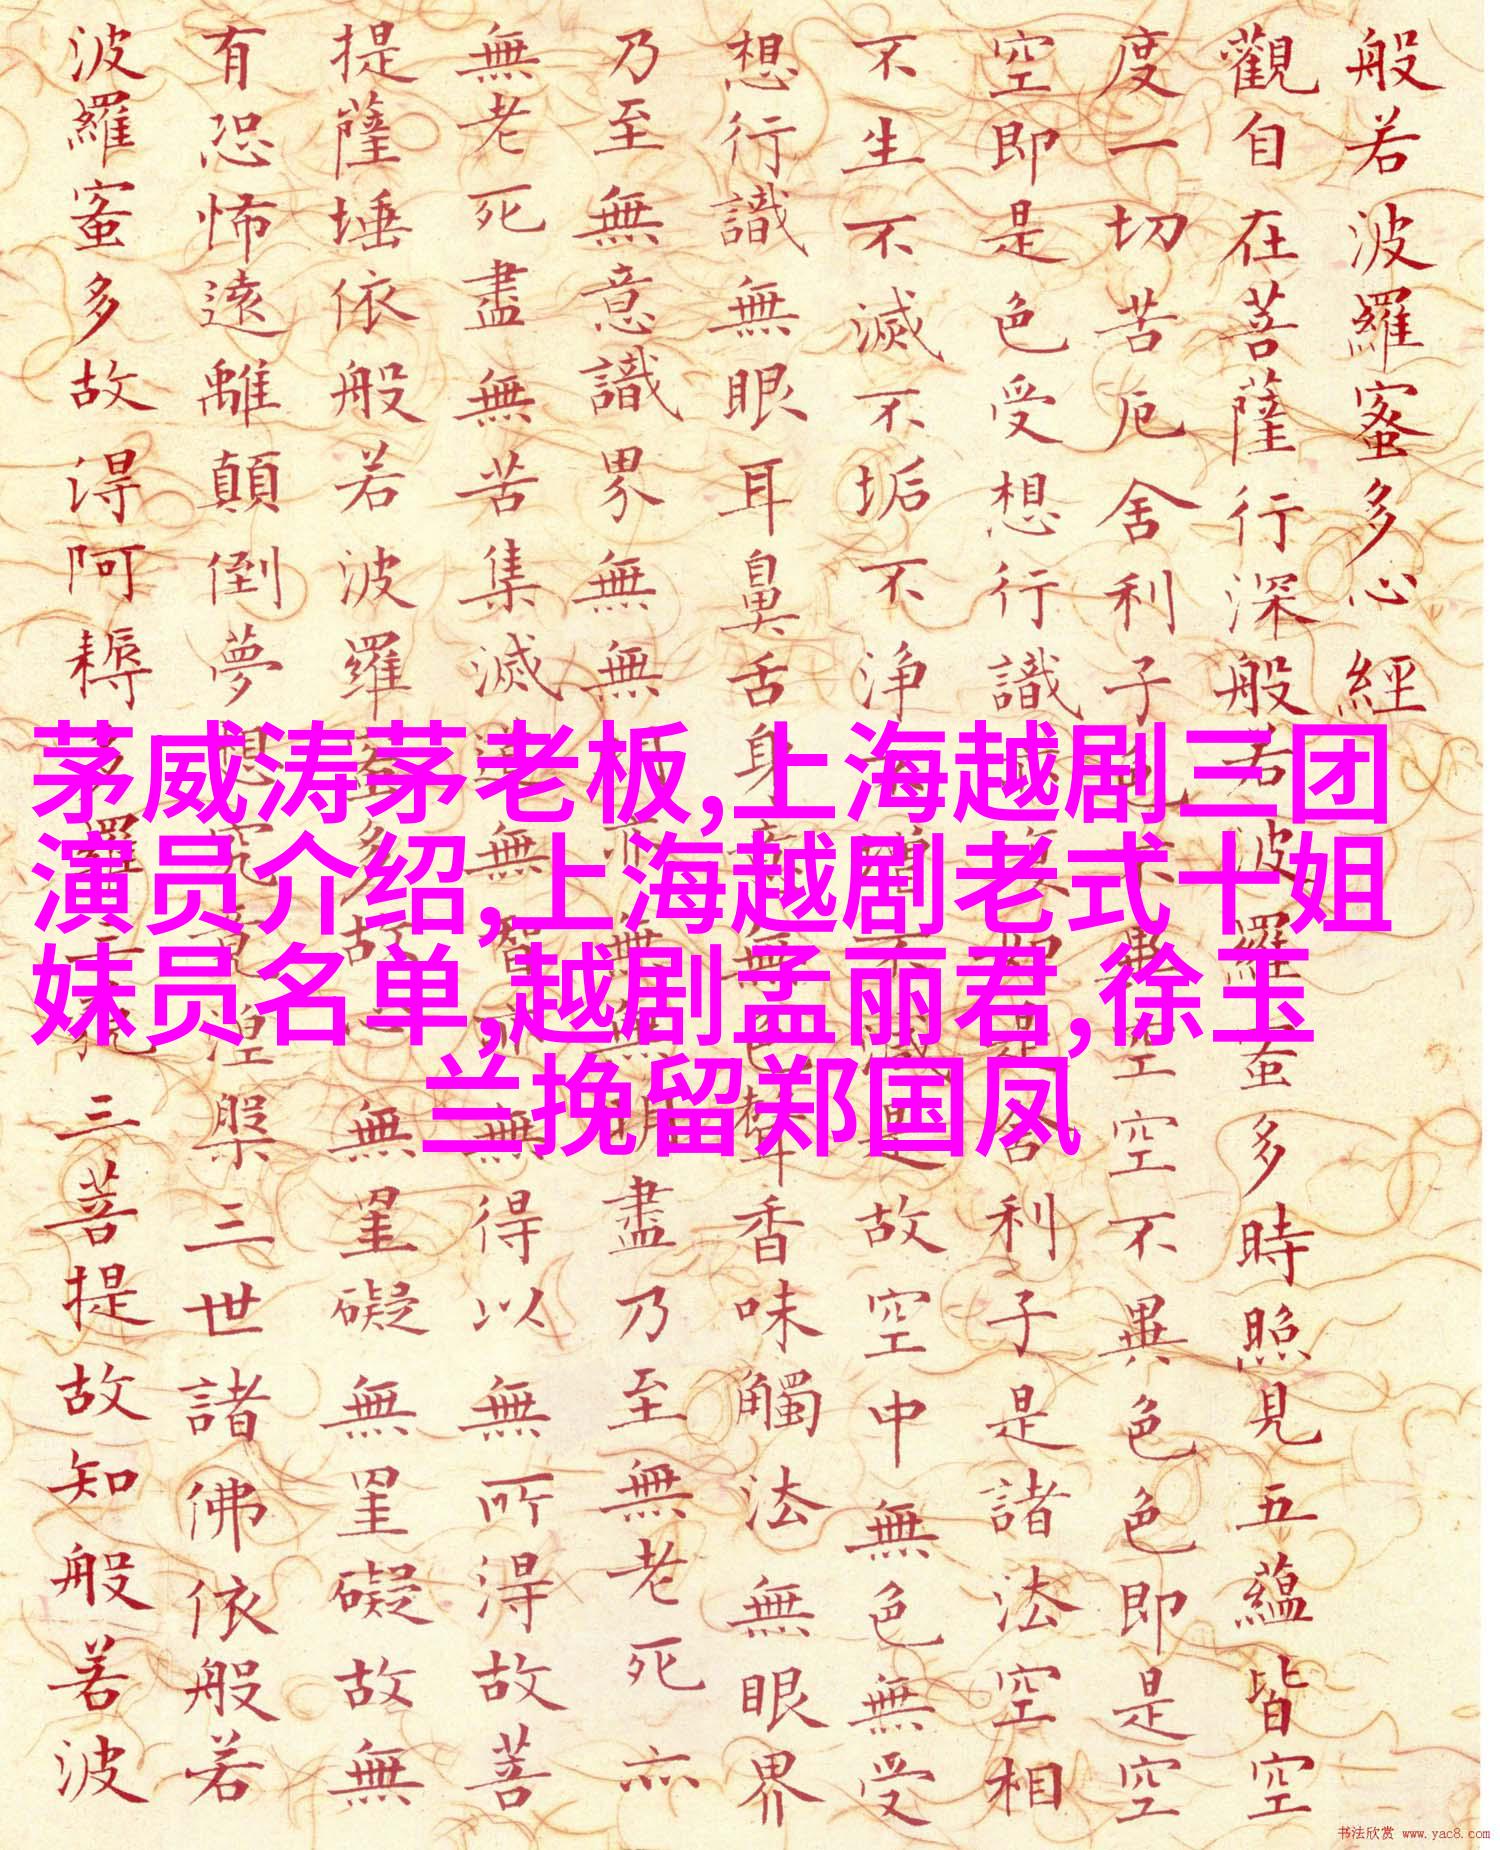 般若波羅蜜多心經
觀自在菩薩行深般若波羅蜜多時照見五蘊皆空
度一切苦厄舍利子色不異空空不異色色即是空
空即是色受想行識亦復如是舍利子是諸法空相
不生不滅不垢不浄不增不減是故空中無色無受
想行識無眼耳鼻舌身意無色聲香味觸法無眼界
乃至無意識界無無明亦無無明盡乃至無老死亦
無老死盡無苦集滅道無智亦無得以無所得故菩
提薩埵依般若波羅蜜多故心無罣礙無罣礙故無
有恐怖遠離顛倒夢想究竟涅槃三世諸佛依般若
波羅蜜多故得阿耨多羅三藐三菩提故知般若波
茅威涛茅老板,上海越剧三团
演员介绍,上海越剧老式十姐
妹员名单,越剧孟丽君,徐玉
兰挽留郑国凤
书法欣赏 www.yac8.com